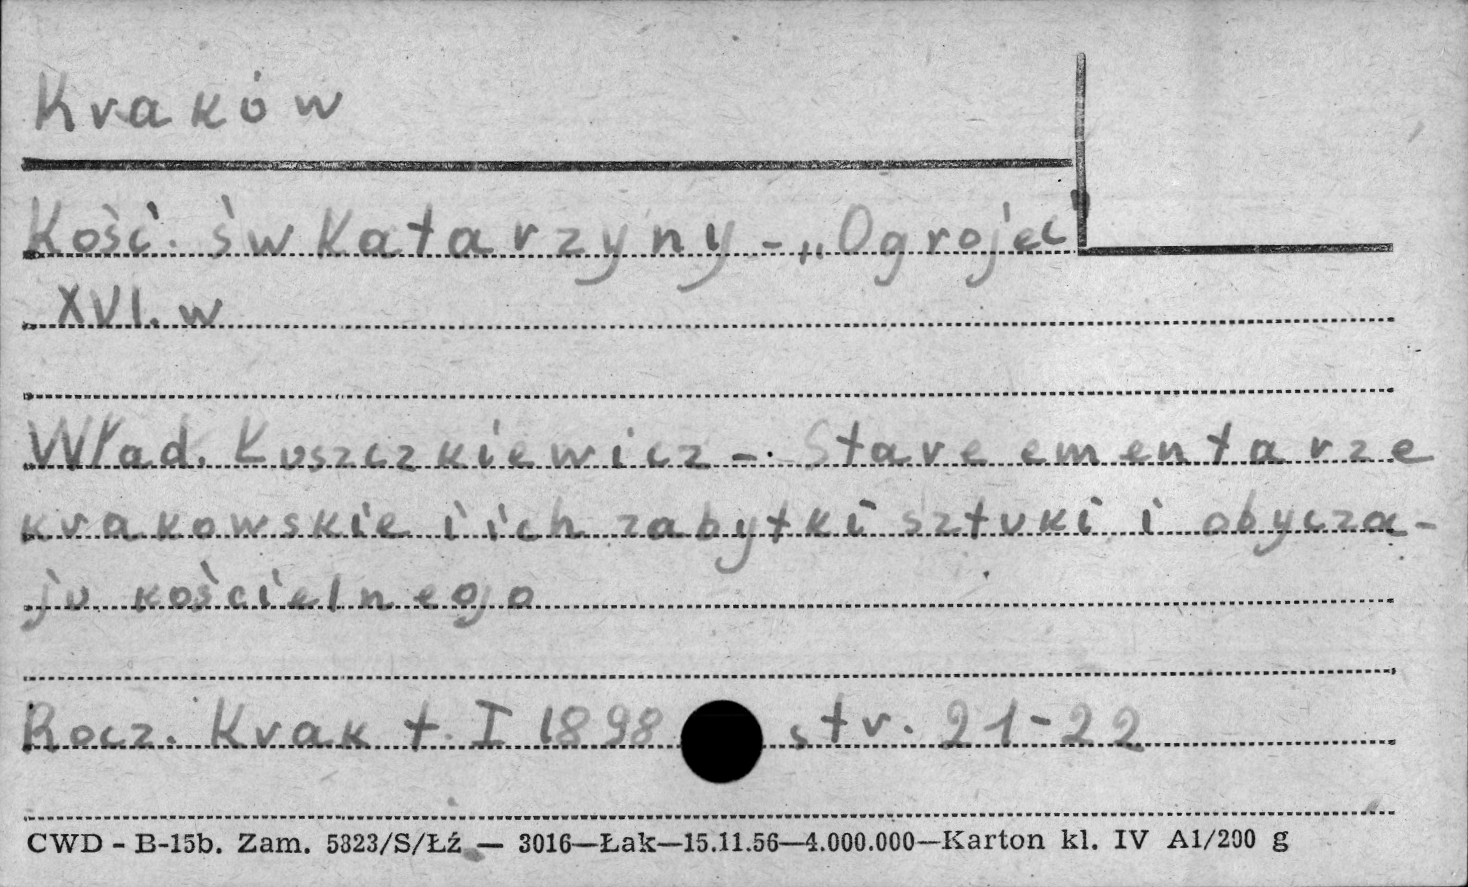 Kraków
Kość. św Katarzyny - „Ogrojec"
XVI. w
Wład. Łuszczkiewicz - Stare cmentarze
krakowskie i ich zabytki sztuki i obycza-
ju kościelnego
Rocz. Krak t. I 1898 str. 21-22
CWD - B-15b. Zam. 5823/S/Łź — 3016—Łak—15.11.56—4.000.000—Karton kl. IV A1/200 g